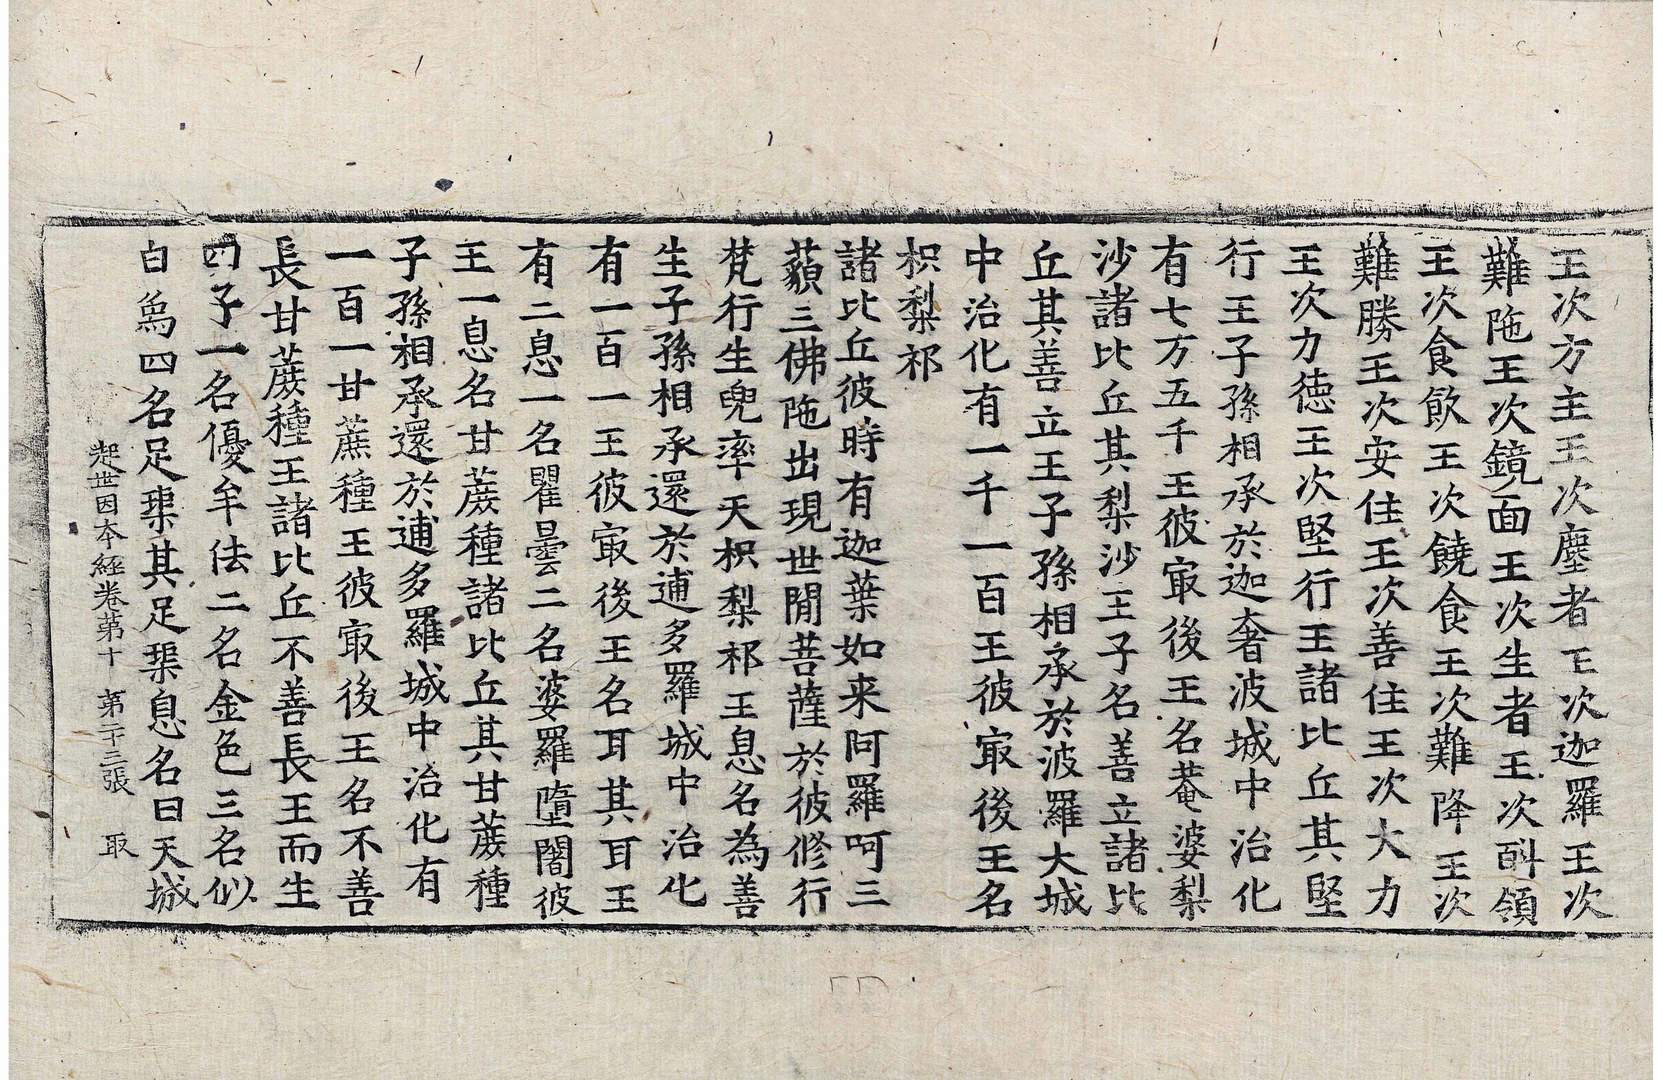 王次方主王次塵者王次迦羅王次
難陁王次鏡面王次生者王次斛領
王次食飲王次饒食王次難降王次
難勝王次安住王次善住王次大力
王次力徳王次堅行王諸比丘其堅
行王子孫相承於迦奢波城中治化
有七万五千王彼㝡後王名菴婆梨
沙諸比丘其梨沙王子名善立諸比
丘其善立王子孫相承於波羅大城
中治化有一千一百王彼㝡後王名
枳梨祁
諸比丘彼時有迦葉如来阿羅呵三
藐三佛陁出現世閒菩薩於彼修行
梵行生兜率天枳梨祁王息名為善
生子孫相承還於逋多羅城中治化
有一百一王彼㝡後王名耳其耳王
有二息一名瞿曇二名婆羅墮闍彼
王一息名甘蔗種諸比丘其甘蔗種
子孫相承還於逋多羅城中治化有
一百一甘蔗種王彼㝡後王名不善
長甘蔗種王諸比丘不善長王而生
四子一名優牟佉二名金色三名似
白為四名足蕖其足蕖息名曰天城
起世因本經卷第十 第二十三張 取